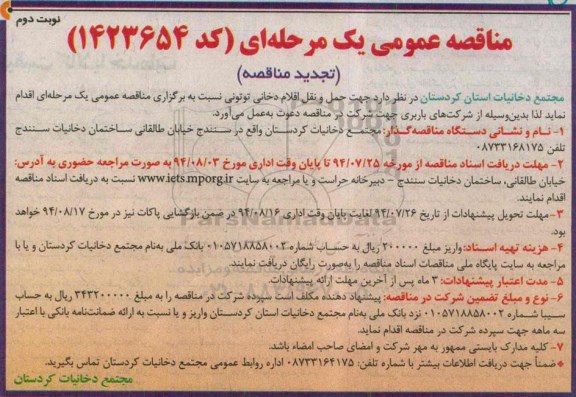 نوبت دوم
مناقصه عمومی یک مرحله‌ای (کد ۱۴۲۳۶۵۴)
(تجدید مناقصه)
مجتمع دخانیات استان کردستان در نظر دارد جهت حمل و نقل اقلام دخانی توتونی نسبت به برگزاری مناقصه عمومی یک مرحله‌ای اقدام
نماید لذا بدین‌وسیله از شرکت‌های باربری جهت شرکت در مناقصه دعوت به‌عمل می‌آورد.
۱- نام و نشانی دستگاه مناقصه‌گذار: مجتمع دخانیات کردستان واقع در سنندج خیابان طالقانی ساختمان دخانیات سنندج
تلفن ۰۸۷۳۳۱۶۸۱۷۵
۲- مهلت دریافت اسناد مناقصه از مورخه ۹۴/۰۷/۲۵ تا پایان وقت اداری مورخ ۹۴/۰۸/۰۳ به صورت مراجعه حضوری به آدرس:
خیابان طالقانی، ساختمان دخانیات سنندج - دبیرخانه حراست و یا مراجعه به سایت www.iets.mporg.ir نسبت به دریافت اسناد مناقصه
اقدام نمایند.
۳- مهلت تحویل پیشنهادات از تاریخ ۹۴/۰۷/۲۶ لغایت پایان وقت اداری ۹۴/۰۸/۱۶ در ضمن بازگشایی پاکات نیز در مورخ ۹۴/۰۸/۱۷ خواهد
بود.
۴- هزینه تهیه اسناد: واریز مبلغ ۳۰۰۰۰۰ ریال به حساب شماره ۰۱۰۵۷۱۸۸۵۸۰۰۲ بانک ملی به‌نام مجتمع دخانیات کردستان و یا با
مراجعه به سایت پایگاه ملی مناقصات اسناد مناقصه را به‌صورت رایگان دریافت نمایند.
۵- مدت اعتبار پیشنهادات: ۳ ماه پس از آخرین مهلت ارائه پیشنهادات.
۶- نوع و مبلغ تضمین شرکت در مناقصه: پیشنهاد دهنده مکلف است سپرده شرکت در مناقصه را به مبلغ ۳۴۳۲۰۰۰۰۰ ریال به حساب
سیبا شماره ۰۱۰۵۷۱۸۸۵۸۰۰۲ نزد بانک ملی به‌نام مجتمع دخانیات استان کردستان واریز و یا نسبت به ارائه ضمانت‌نامه بانکی با اعتبار
سه ماهه جهت سپرده شرکت در مناقصه اقدام نماید.
۷- کلیه مدارک بایستی ممهور به مهر شرکت و امضای صاحب امضاء باشد.
*ضمناً جهت دریافت اطلاعات بیشتر با شماره تلفن: ۰۸۷۳۳۱۶۴۱۷۵ اداره روابط عمومی مجتمع دخانیات کردستان تماس بگیرید.
مجتمع دخانیات کردستان